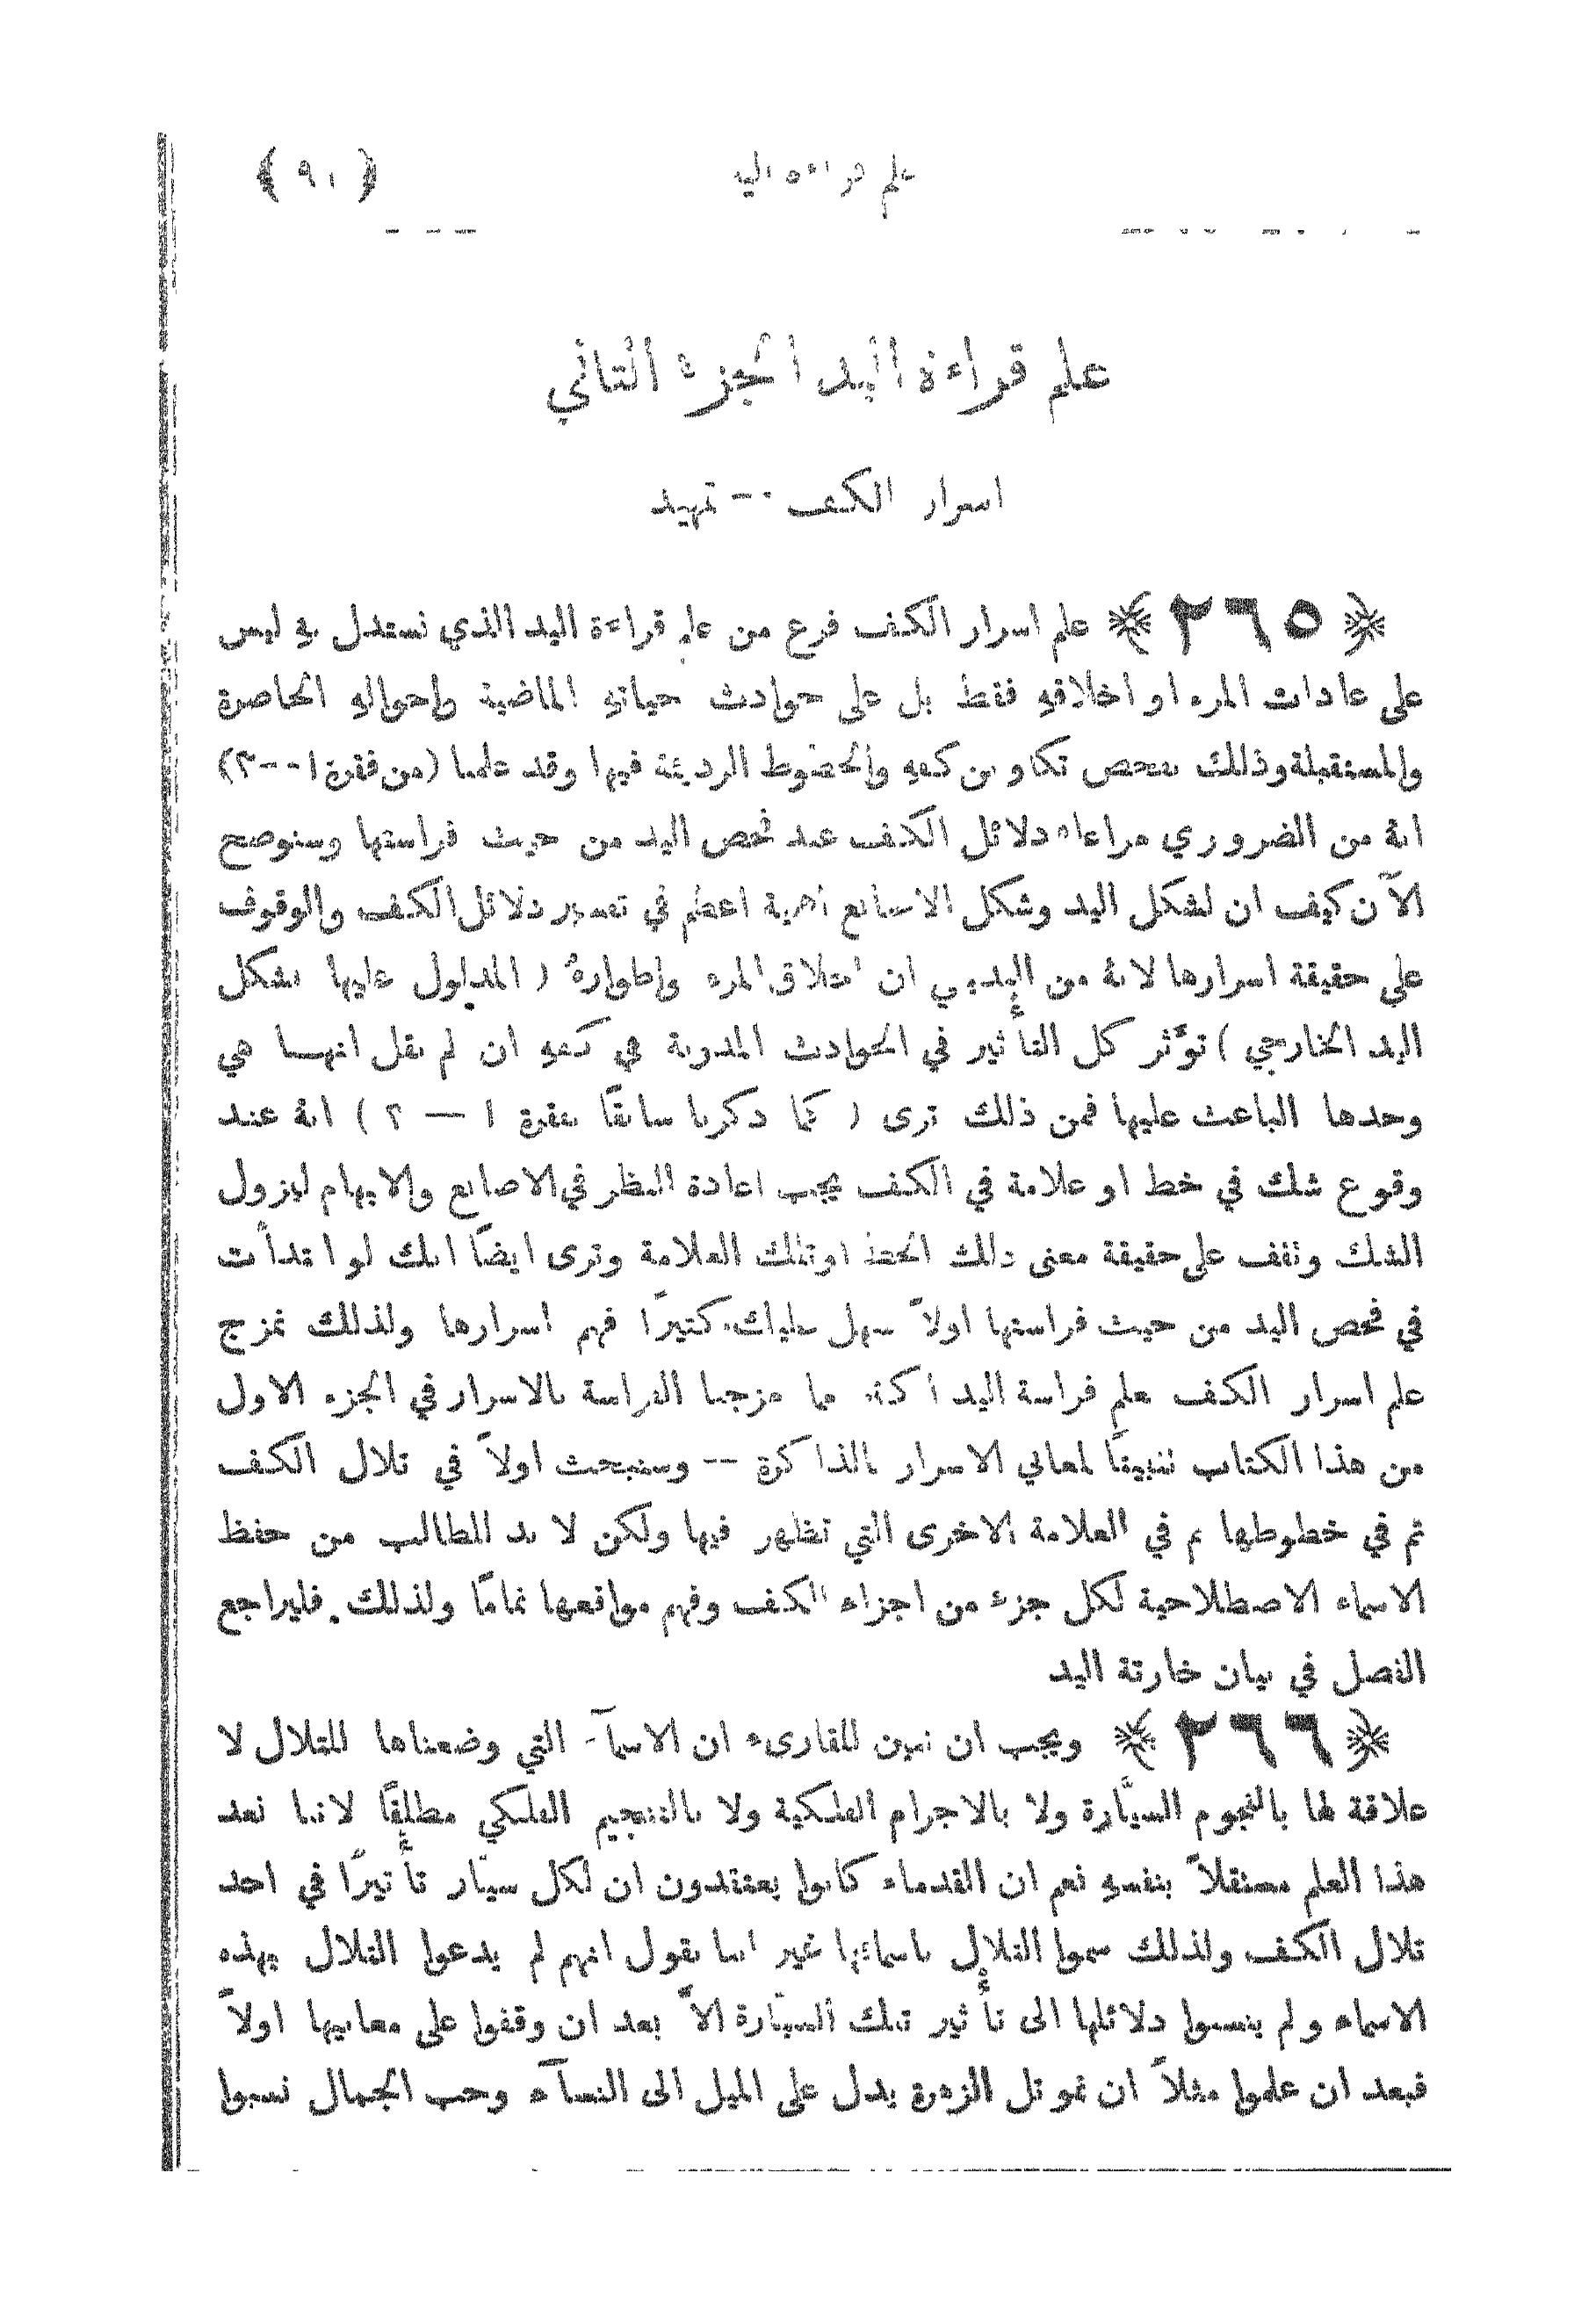 علم قراءة اليد
﴿ ٩١ ﴾
علم قراءة اليد الجزء الثاني
اسرار الكف -- تمهيد
﴿ ٢٦٥ ﴾ علم اسرار الكف فرع من علم قراءة اليد الذي نستدل به ليس
على عادات المرء او اخلاقه فقط بل على حوادث حياته الماضية واحواله الحاضرة
والمستقبلة وذلك بفحص تكاوين كفه والخطوط الرديئة فيها وقد علمنا (من فقرة ١--٢)
انهُ من الضروري مراعاة دلائل الكف عند فحص اليد من حيث فراستها وسنوضح
الآن كيف ان لشكل اليد وشكل الاصابع اهمية اعظم في تفسير دلائل الكف والوقوف
على حقيقة اسرارها لانهُ من البديهي ان اخلاق المرء واطوارهُ ( المدلول عليها بشكل
اليد الخارجي ) تؤثر كل التأثير في الحوادث المدونة في كفه ان لم نقل انهـا هي
وحدها الباعث عليها فمن ذلك ترى ( كما ذكرنا سابقًا بفقرة ١ — ٢ ) انهُ عند
وقوع شك في خط او علامة في الكف يجب اعادة النظر في الاصابع والابهام ليزول
الشك ونقف على حقيقة معنى ذلك الخط او تلك العلامة وترى ايضًا انك لو ابتدأت
في فحص اليد من حيث فراستها اولاً سهل عليك كثيرًا فهم اسرارها ولذلك نمزج
علم اسرار الكف بعلم فراسة اليد اكثر مما مزجنا الفراسة بالاسرار في الجزء الاول
من هذا الكتاب تثبيتًا لمعاني الاسرار بالذاكرة -- وسنبحث اولاً في تلال الكف
ثم في خطوطها ثم في العلامة الاخرى التي تظهر فيها ولكن لا بد للطالب من حفظ
الاسماء الاصطلاحية لكل جزء من اجزاء الكف وفهم مواقعها تمامًا ولذلك. فليراجع
الفصل في بيان خارتة اليد
﴿ ٢٦٦ ﴾ ويجب ان نبين للقارىء ان الاسمآء التي وضعناها للتلال لا
علاقة لها بالنجوم السيَّارة ولا بالاجرام الفلكية ولا بالتنجيم الفلكي مطلقًا لاننا نعد
هذا العلم مستقلاً بنفسه نعم ان القدماء كانوا يعتقدون ان لكل سيّار تأثيرًا في احد
تلال الكف ولذلك سموا التلال باسمائها غير اننا نقول انهم لم يدعوا التلال بهذه
الاسماء ولم ينسبوا دلائلها الى تأثير تلك السيّارة الاَّ بعد ان وقفوا على معانيها اولاً
فبعد ان علموا مثلاً ان نمو تل الزهرة يدل على الميل الى النسآء وحب الجمال نسبوا